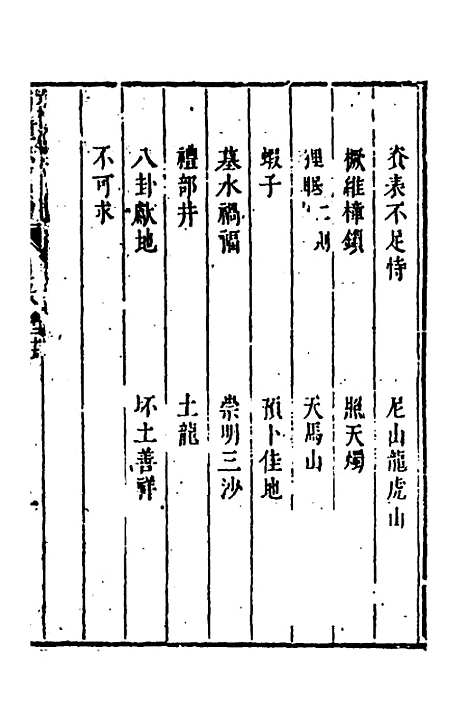 表不足恃　尼山龍虎山
橛維樟鎖　照天燭
狸眠二則　天馬山
蝦子　預卜佳地
墓水禍福　崇明三沙
禮部井　土龍
八卦獻地　坏土善祥
不可求